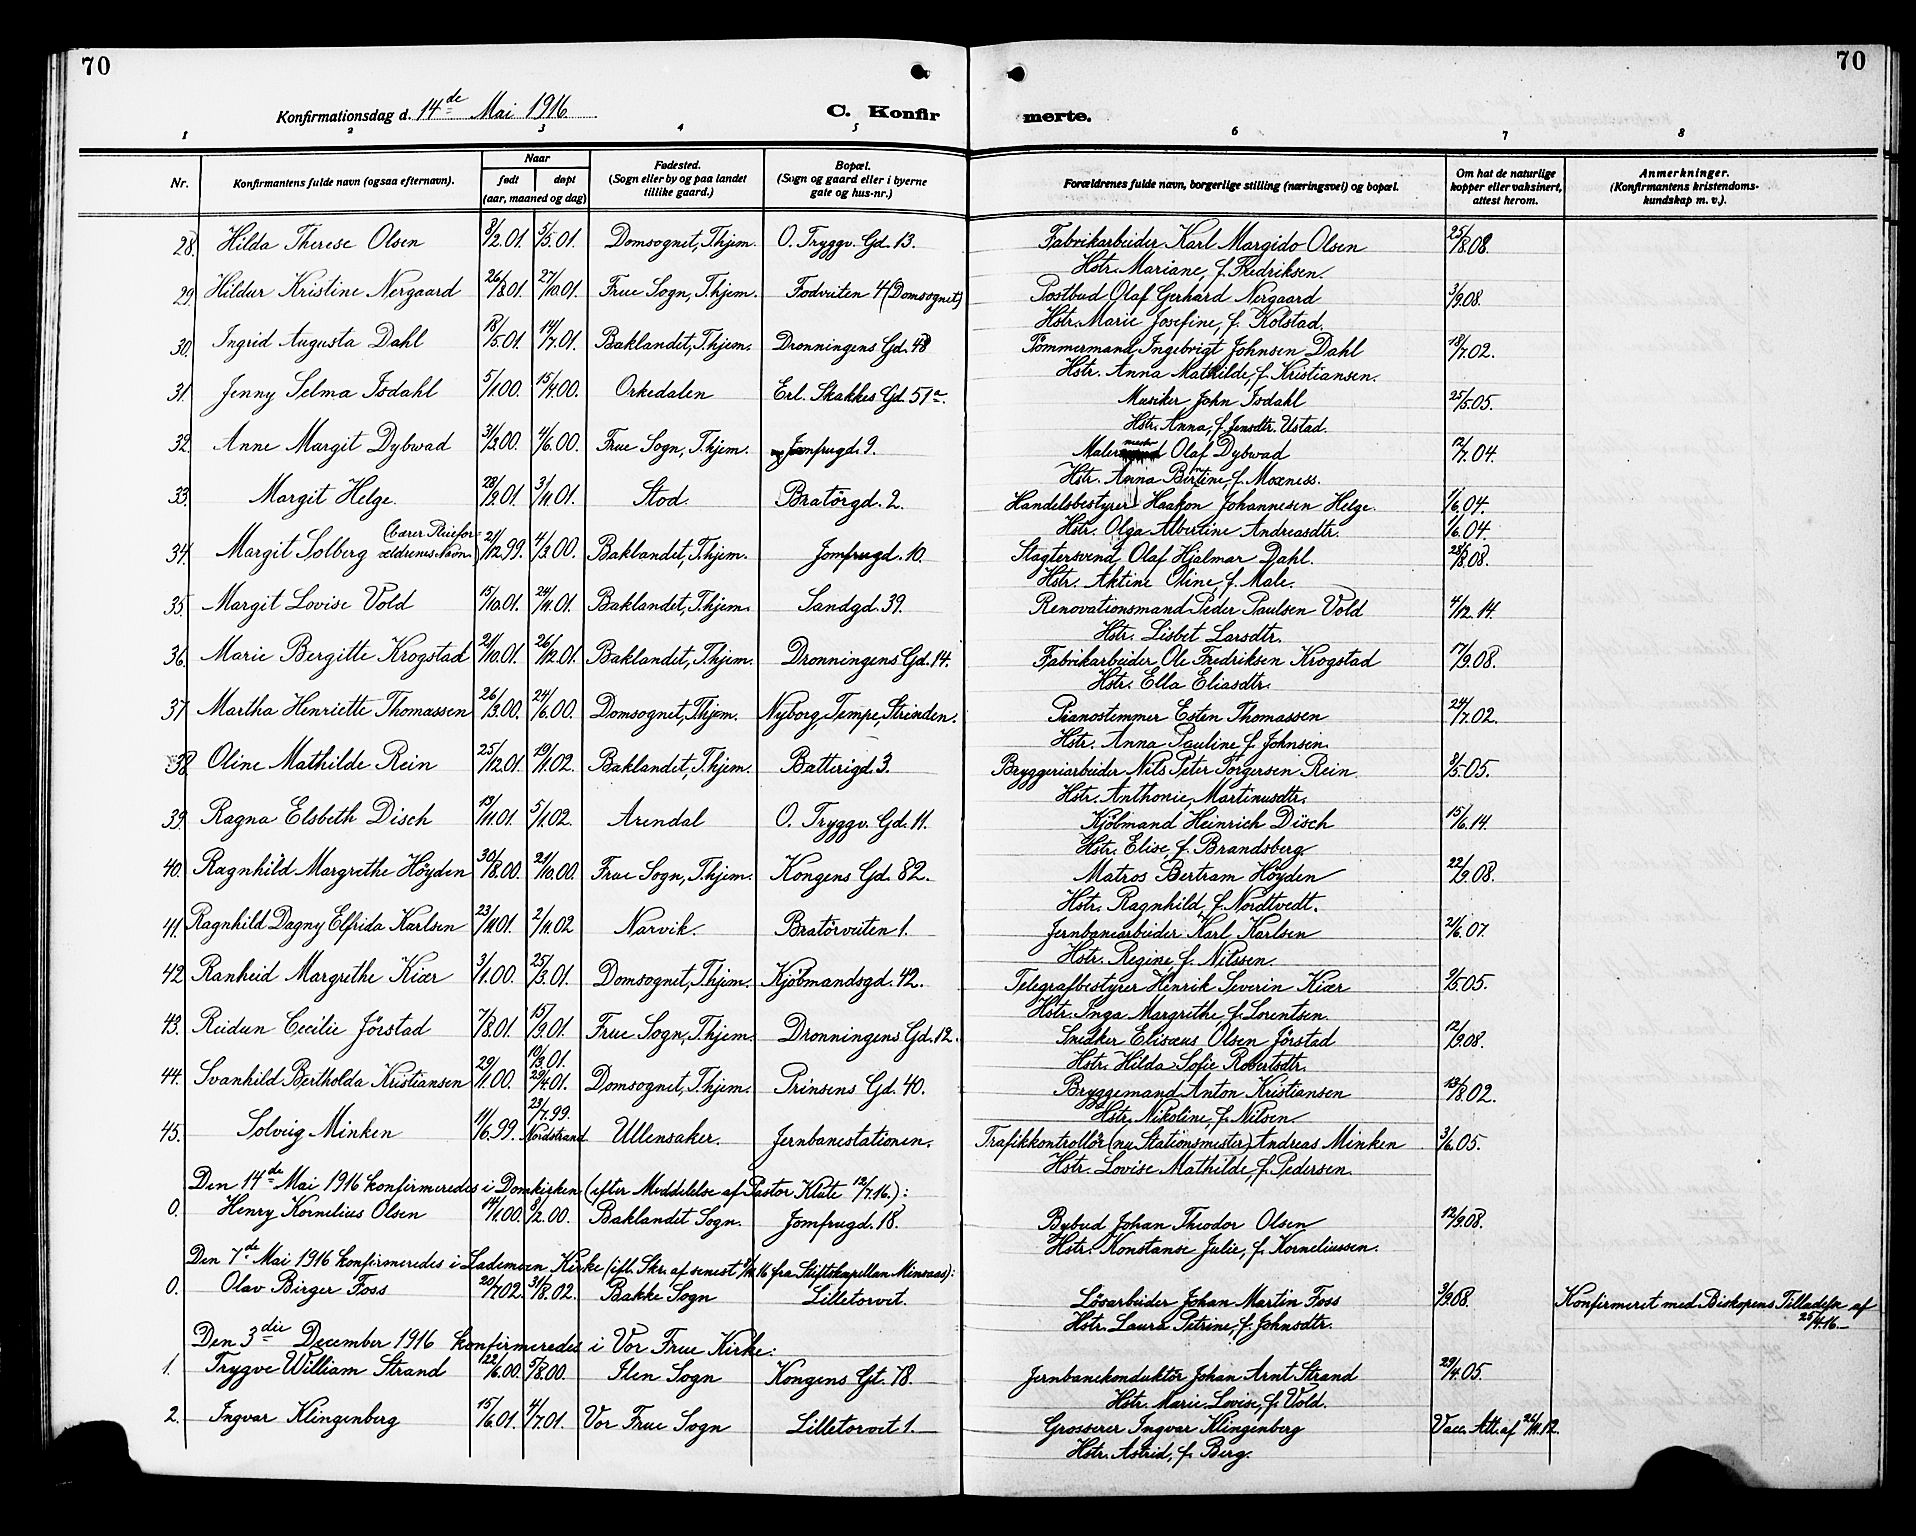 70
70
Konfirmationsdag d. 14de Mai 1916.
C. Konfirmerte.
1 2 3 4 5 6 7 8
Nr. Konfirmantens fulde navn (ogsaa efternavn). Naar født døpt (aar, maaned og dag) Fødested. (Sogn eller by og paa landet tillike gaard.) Bopæl. (Sogn og gaard eller i byerne gate og hus-nr.) Forældrenes fulde navn, borgerlige stilling (næringsvei) og bopæl. Om hat de naturlige kopper eller vaksinert, attest herom. Anmerkninger. (Konfirmantens kristendoms-kundskap m. v.).
28. Hilda Therese Olsen 3/2.01. 3/5.01. Domsognet, Thjem. O. Tryggv. Gd. 13. Fabrikarbeider Karl Margido Olsen 25/8.08.
Hstr. Mariane, f. Fredriksen.
29. Hildur Kristine Nergaard 26/8.01. 27/10.01. Frue Sogn, Thjem. Fodveiten 4 (Domsognet) Postbud Olaf Gerhard Nergaard 3/9.08.
Hstr. Marie Josefine, f. Kolstad.
30. Ingrid Augusta Dahl 18/5.01. 14/7.01. Baklandet, Thjem. Dronningens Gd. 48 Tömmermand Ingebrigt Johnsen Dahl 18/7.02.
Hstr. Anna Mathilde, f. Kristiansen.
31. Jenny Selma Isdahl 5/1.00. 15/4.00. Orkedalen Erl. Skakkes Gd. 51a. Musiker John Isdahl 25/5.05.
Hstr. Anna, f. Jensdtr. Ustad.
32. Anne Margit Dybwad 31/3.00. 4/6.00. Frue Sogn, Thjem. Jomfrugd. 9. Malermester Olaf Dybwad 12/7.04.
Hstr. Anna Bertine, f. Moxness.
33. Margit Helge. 28/9.01. 3/11.01. Stod. Bratörgd. 2. Handelsbestyrer Haakon Johannesen Helge. 1/6.04.
Hstr. Olga Albertine Andreasdtr. 1/6.04.
34. Margit Solberg (bærer Pleiefor-ældrenes Navn.) 21/12.99. 4/3.00. Baklandet, Thjem. Jomfrugd. 10. Slagtersvend Olaf Hjalmar Dahl. 25/8.08.
Hstr. Aktine Oline, f. Male.
35. Margit Lovise Vold 15/10.01. 24/11.01. Baklandet, Thjem. Sandgd. 39. Renovationsmand Peder Paulsen Vold 4/12.14.
Hstr. Lisbet Larsdtr.
36. Marie Bergitte Krogstad 21/10.01. 26/12.01. Baklandet, Thjem. Dronningens Gd. 14. Fabrikarbeider Ole Fredriksen Krogstad 17/9.08.
Hstr. Ella Eliasdtr.
37. Martha Henriette Thomassen 26/3.00. 24/6.00. Domsognet, Thjem. Nyborg, Tempe, Strinden. Pianostemmer Esten Thomassen 24/7.02.
Hstr. Anna Pauline f. Johnsen.
38. Oline Mathilde Rein 25/12.01. 19/1.02. Baklandet, Thjem. Batterigd. 3. Bryggeriarbeider Nils Peter Torgersen Rein. 3/5.05.
Hstr. Anthonie, Martinusdtr.
39. Ragna Elsbeth Disch 19/11.01. 5/1.02. Arendal O. Tryggv. Gd. 11. Kjöbmand Heinrich Disch 15/6.14.
Hstr. Elise, f. Brandsberg
40. Ragnhild Margrethe Höyden 30/8.00. 21/10.00. Frue Sogn, Thjem. Kongens Gd. 82. Matros Bertram Höyden 22/9.08.
Hstr. Ragnhild, f. Nordtvedt.
41. Ragnhild Dagny Elfrida Karlsen 23/11.01. 2/11.02 Narvik. Bratörveiten 1. Jernbanearbeider Karl Karlsen 21/6.07.
Hstr. Regine, f. Nilssen.
42. Ranheid Margrethe Kiær 3/1.00. 25/3.01. Domsognet, Thjem. Kjöbmandsgd. 42. Telegrafbestyrer Henrik Severin Kiær 9/5.05.
Hstr. Inga Margrethe, f. Lorentsen.
43. Reidun Cecilie Jörstad 7/8.01. 15/9.01. Frue Sogn, Thjem. Dronningens Gd. 12. Snedker Elisæus Olsen Jörstad 12/9.08.
10/3.01. Hstr. Hilda Sofie Robertsdtr.
44. Svanhild Bertholda Kristiansen 29/1.00. 29/4.01. Domsognet, Thjem. Prinsens Gd. 40. Bryggemand Anton Kristiansen 19/8.02.
23/7.99. Hstr. Nikoline, f. Nilsen.
45. Solveig Minken 11/6.99. Nordstrand Ullensaker. Jernbanestationen. Trafikkontrollör (ny Stationsmester) Andreas Minken 3/6.05.
Hstr. Lovise Mathilde, f. Pedersen.
Den 14de Mai 1916 konfirmeredes i Domkirken (efter Meddelelse af Pastor Klüte 12/7.16.):
0. Henry Kornelius Olsen 14/1.00. 9/2.00. Baklandet Sogn. Jomfrugd. 18. Bybud Johan Theodor Olsen 12/9.08.
Hstr. Konstanse Julie, f. Korneliussen.
Den 7de Mai 1916 konfirmeredes i Lademoen Kirke (ifl. Skr. af senest 9/11.16 fra Stiftskapellan Minsaas):
0. Olav Birger Foss 20/7.02. 31/8.02. Bakke Sogn Lilletorvet. Lösarbeider Johan Martin Foss 3/9.08. Konfirmeret med Biskopens Tilladelse af 25/4.16.
Hstr. Laura Petrine, f. Johnsdtr.
Den 3die December 1916 konfirmeredes i Vor Frue Kirke:
1. Trygve William Strand 22/6.00. 5/8.00. Ilen Sogn Kongens Gt. 78. Jernbanekonduktör Johan Arnt Strand 29/4.05.
Hstr. Marie Lovise, f. Vold.
2. Ingvar Klingenberg 15/6.01. 4/7.01. Vor Frue Sogn Lilletorvet 1. Grosserer Ingvar Klingenberg Vacc. Att. af 26/11.12.
Hstr. Astrid, f. Berg.